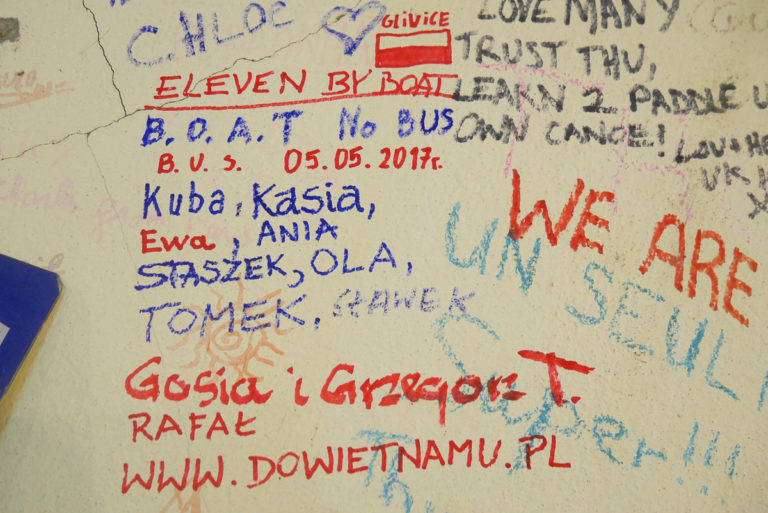 C.HLOC
GLIVICE
ELEVEN BY BOAT
B.O.A.T No BUS
B.U.S. 05.05.2017r.
Kuba, Kasia,
Ewa, ANIA
STASZEK, OLA,
TOMEK, SŁAWEK
Gosia i Grzegorz T.
RAFAŁ
WWW.DOWIETNAMU.PL
LOVE MANY
TRUST
LEARN 2 PADDLE
OWN CANOE!
UK
WE ARE
UN SEUL
Super!!!